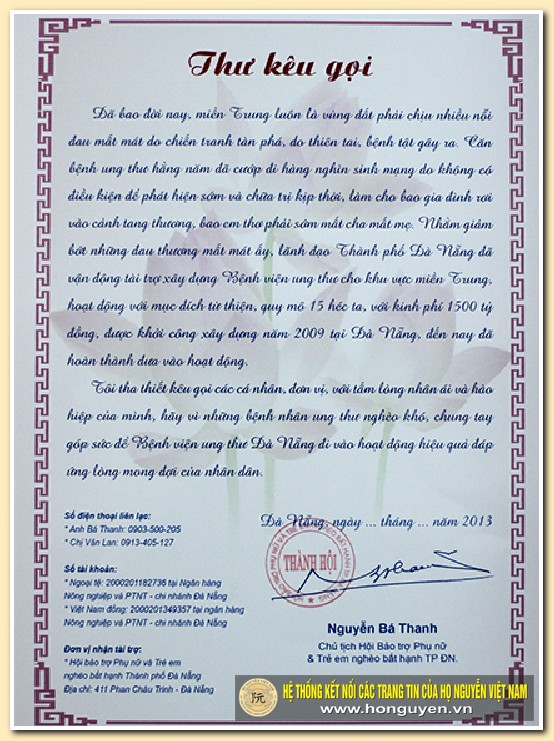 Thư kêu gọi
Đã bao đời nay, miền Trung luôn là vùng đất phải chịu nhiều nỗi
đau mất mát do chiến tranh tàn phá, do thiên tai, bệnh tật gây ra. Căn
bệnh ung thư hằng năm đã cướp đi hàng nghìn sinh mạng do không có
điều kiện để phát hiện sớm và chữa trị kịp thời, làm cho bao gia đình rơi
vào cảnh tang thương, bao em thơ phải sớm mất cha mất mẹ. Nhằm giảm
bớt những đau thương mất mát ấy, lãnh đạo Thành phố Đà Nẵng đã
vận động tài trợ xây dựng Bệnh viện ung thư cho khu vực miền Trung,
hoạt động với mục đích từ thiện, quy mô 15 héc ta, với kinh phí 1500 tỷ
đồng, được khởi công xây dựng năm 2009 tại Đà Nẵng, đến nay đã
hoàn thành đưa vào hoạt động.
Tôi tha thiết kêu gọi các cá nhân, đơn vị, với tấm lòng nhân ái và hào
hiệp của mình, hãy vì những bệnh nhân ung thư nghèo khó, chung tay
góp sức để Bệnh viện ung thư Đà Nẵng đi vào hoạt động hiệu quả đáp
ứng lòng mong đợi của nhân dân.
Số điện thoại liên lạc:
* Anh Bá Thanh: 0903-500-205
* Chị Vân Lan: 0913-405-127
Số tài khoản:
* Ngoại tệ: 2000201182736 tại Ngân hàng
Nông nghiệp và PTNT - chi nhánh Đà Nẵng
* Việt Nam đồng: 2000201349357 tại ngân hàng
Nông nghiệp và PTNT - chi nhánh Đà Nẵng
Đơn vị nhận tài trợ:
* Hội bảo trợ Phụ nữ và Trẻ em
nghèo bất hạnh Thành phố Đà Nẵng
Địa chỉ: 411 Phan Châu Trinh - Đà Nẵng
Đà Nẵng, ngày ... tháng ... năm 2013
THÀNH HỘI
Nguyễn Bá Thanh
Chủ tịch Hội Bảo trợ Phụ nữ
& Trẻ em nghèo bất hạnh TP ĐN.
阮
HỆ THỐNG KẾT NỐI CÁC TRANG TIN CỦA HỌ NGUYỄN VIỆT NAM
www.honguyen.vn